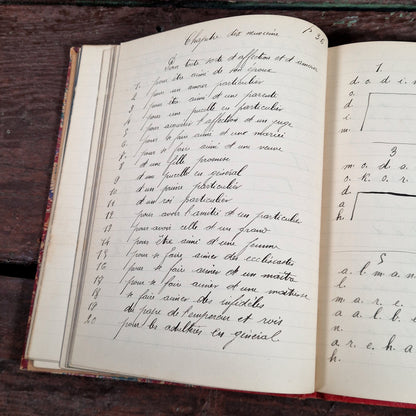 Chapitre des
p 36
Pour toute sorte d'affection et d'amour
1. pour être aimé de son époux
2 pour un amour particulier
3 pour être aimé d'une parente
4 pour une pucelle en particulier
5 pour acquérir l'affection d'un juge
6 pour se faire aimer d'une mariée
7 pour se faire aimer d'une veuve
8 d'une fille promise
9 d'une pucelle en général
10 d'un prince particulier
11 d'un roi particulier
12 pour avoir l'amitié d'un particulier
13 pour avoir celle d'un grand
14 pour être aimé d'une femme
15 pour se faire aimer des
16 pour se faire aimer d'un maître
17 pour se faire aimer d'une maitresse
18 se faire aimer des infidèles
19 du pape de l'empereur et rois
20 pour les adultères en général
1
d. o. d. i.
o
d
i
m
3
m. o. d. a.
o. k. o. r.
d
a
h
5
a. l. m. a. n
l
m. a. r. e.
a. a. l. b. e.
n
a. r. e. h. a
h.